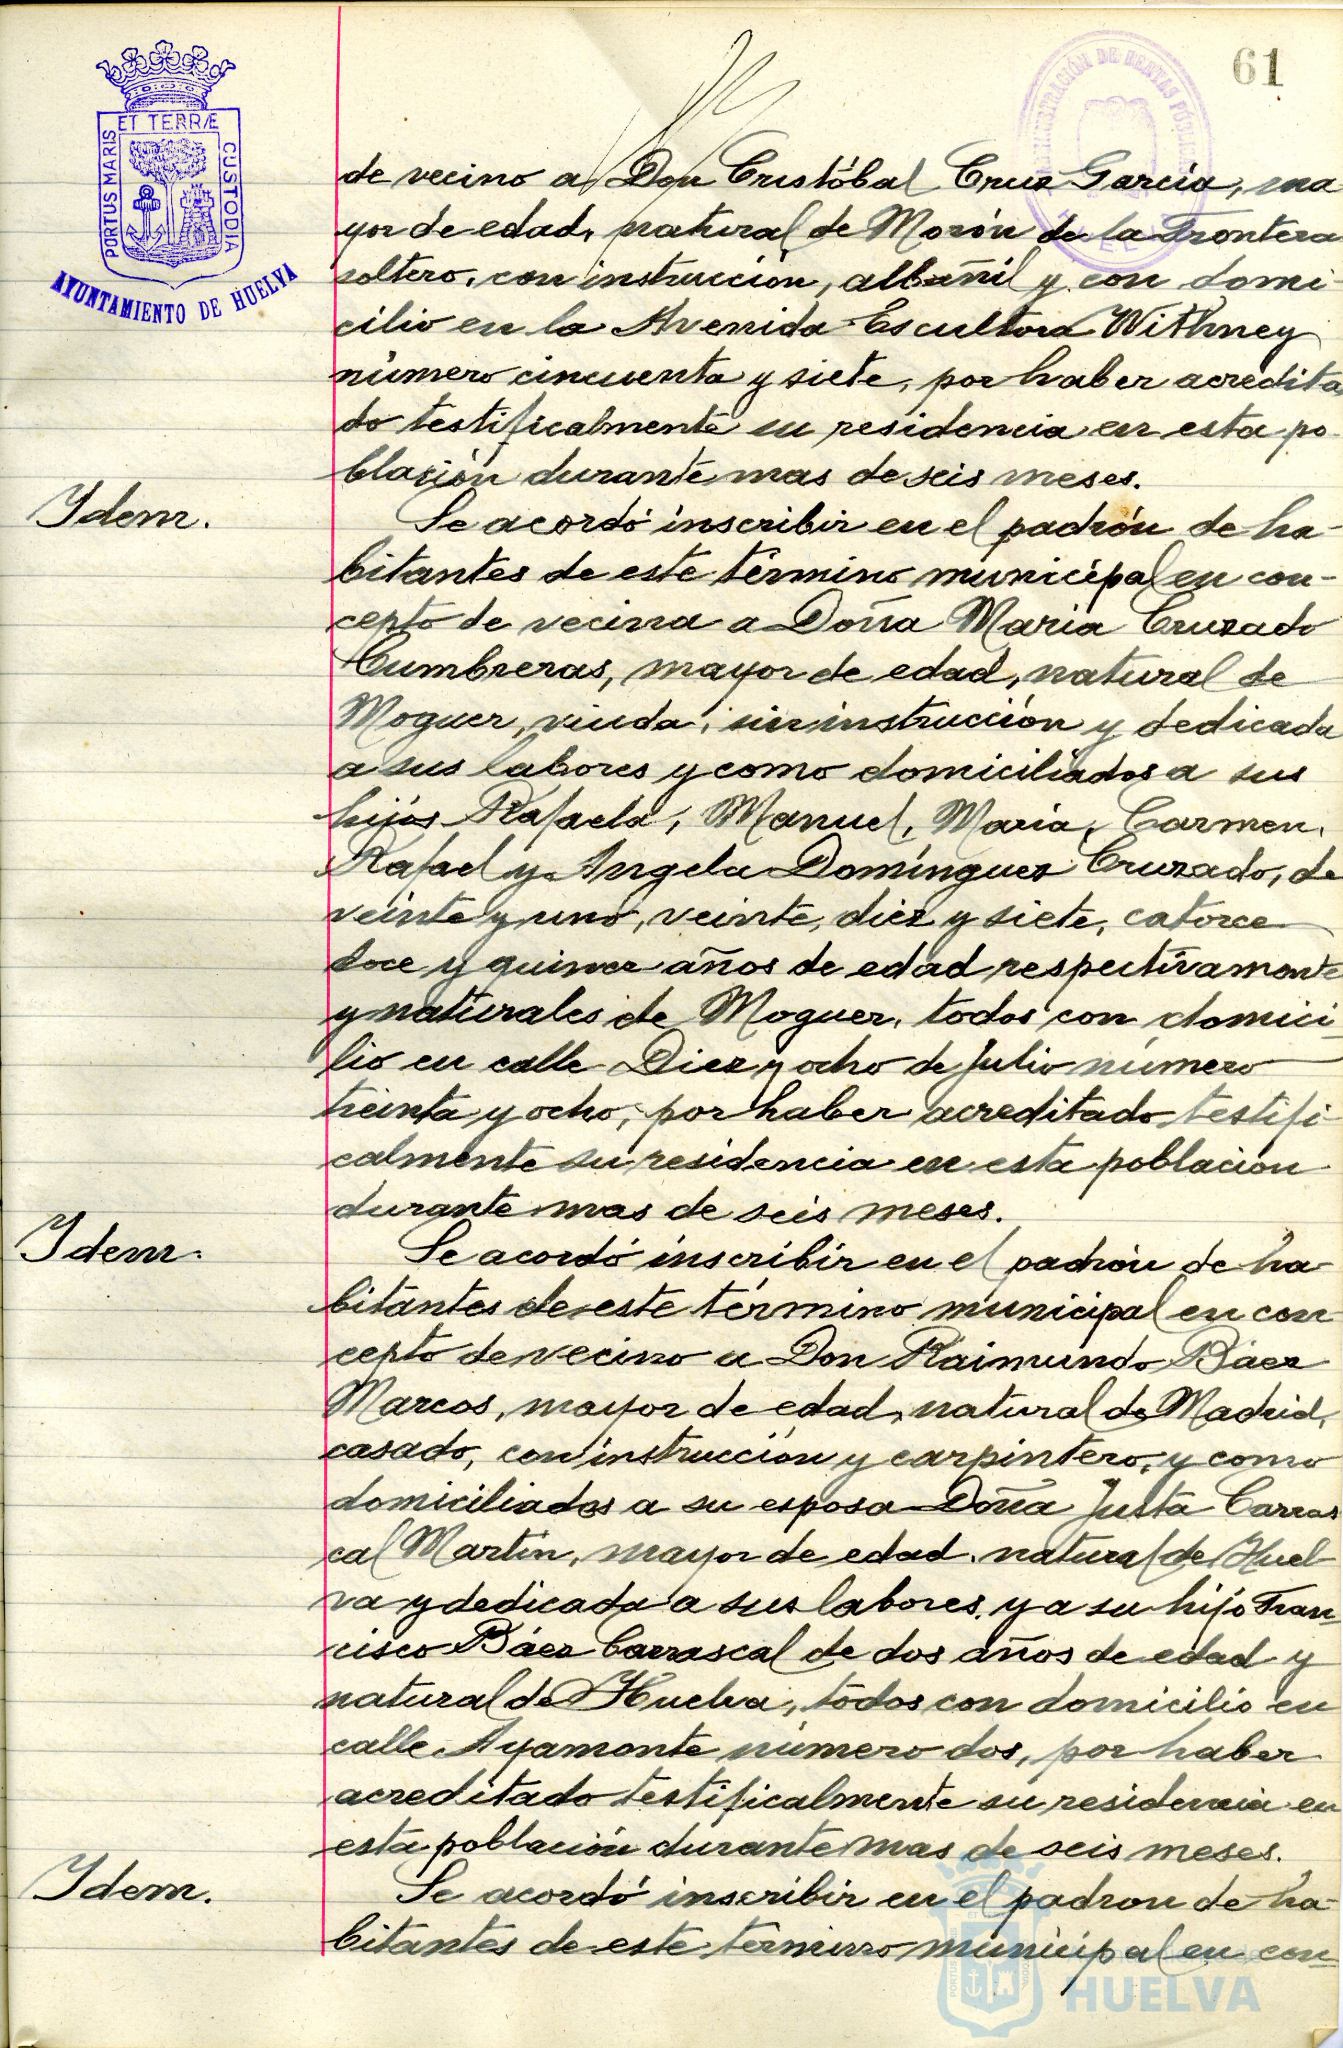 61
PORTUS MARIS ET TERRÆ CUSTODIA
AYUNTAMIENTO DE HUELVA
ADMINISTRACIÓN DE RENTAS PÚBLICAS
de vecino a Don Cristóbal Cruz García, ma
yor de edad, natural de Morón de la Frontera
soltero, con instrucción, albañil y con domi-
cilio en la Avenida Escultora Withney
número cincuenta y siete, por haber acredita
do testificalmente su residencia en esta po-
blación durante mas de seis meses.
Idem.
Se acordó inscribir en el padrón de ha-
bitantes de este término municipal en con-
cepto de vecina a Doña María Cruzado
Cumbreras, mayor de edad, natural de
Moguer, viuda, sin instrucción y dedicada
a sus labores y como domiciliados a sus
hijos Rafaela, Manuel, María, Carmen,
Rafael y Angela Domínguez Cruzado, de
veinte y uno, veinte, diez y siete, catorce
doce y quince años de edad respectivamente
y naturales de Moguer, todos con domici-
lio en calle Diez y ocho de Julio número
treinta y ocho, por haber acreditado testifi
calmente su residencia en esta población
durante mas de seis meses.
Idem.
Se acordó inscribir en el padrón de ha
bitantes de este término municipal en con
cepto de vecino a Don Raimundo Báez
Marcos, mayor de edad, natural de Madrid,
casado, con instrucción y carpintero, y como
domiciliados a su esposa Doña Justa Carras
cal Martín, mayor de edad, natural de Huel
va y dedicada a sus labores, y a su hijo Fran
cisco Báez Carrascal de dos años de edad y
natural de Huelva, todos con domicilio en
calle Ayamonte número dos, por haber
acreditado testificalmente su residencia en
esta población durante mas de seis meses.
Idem.
Se acordó inscribir en el padron de ha-
bitantes de este término municipal en con-
HUELVA